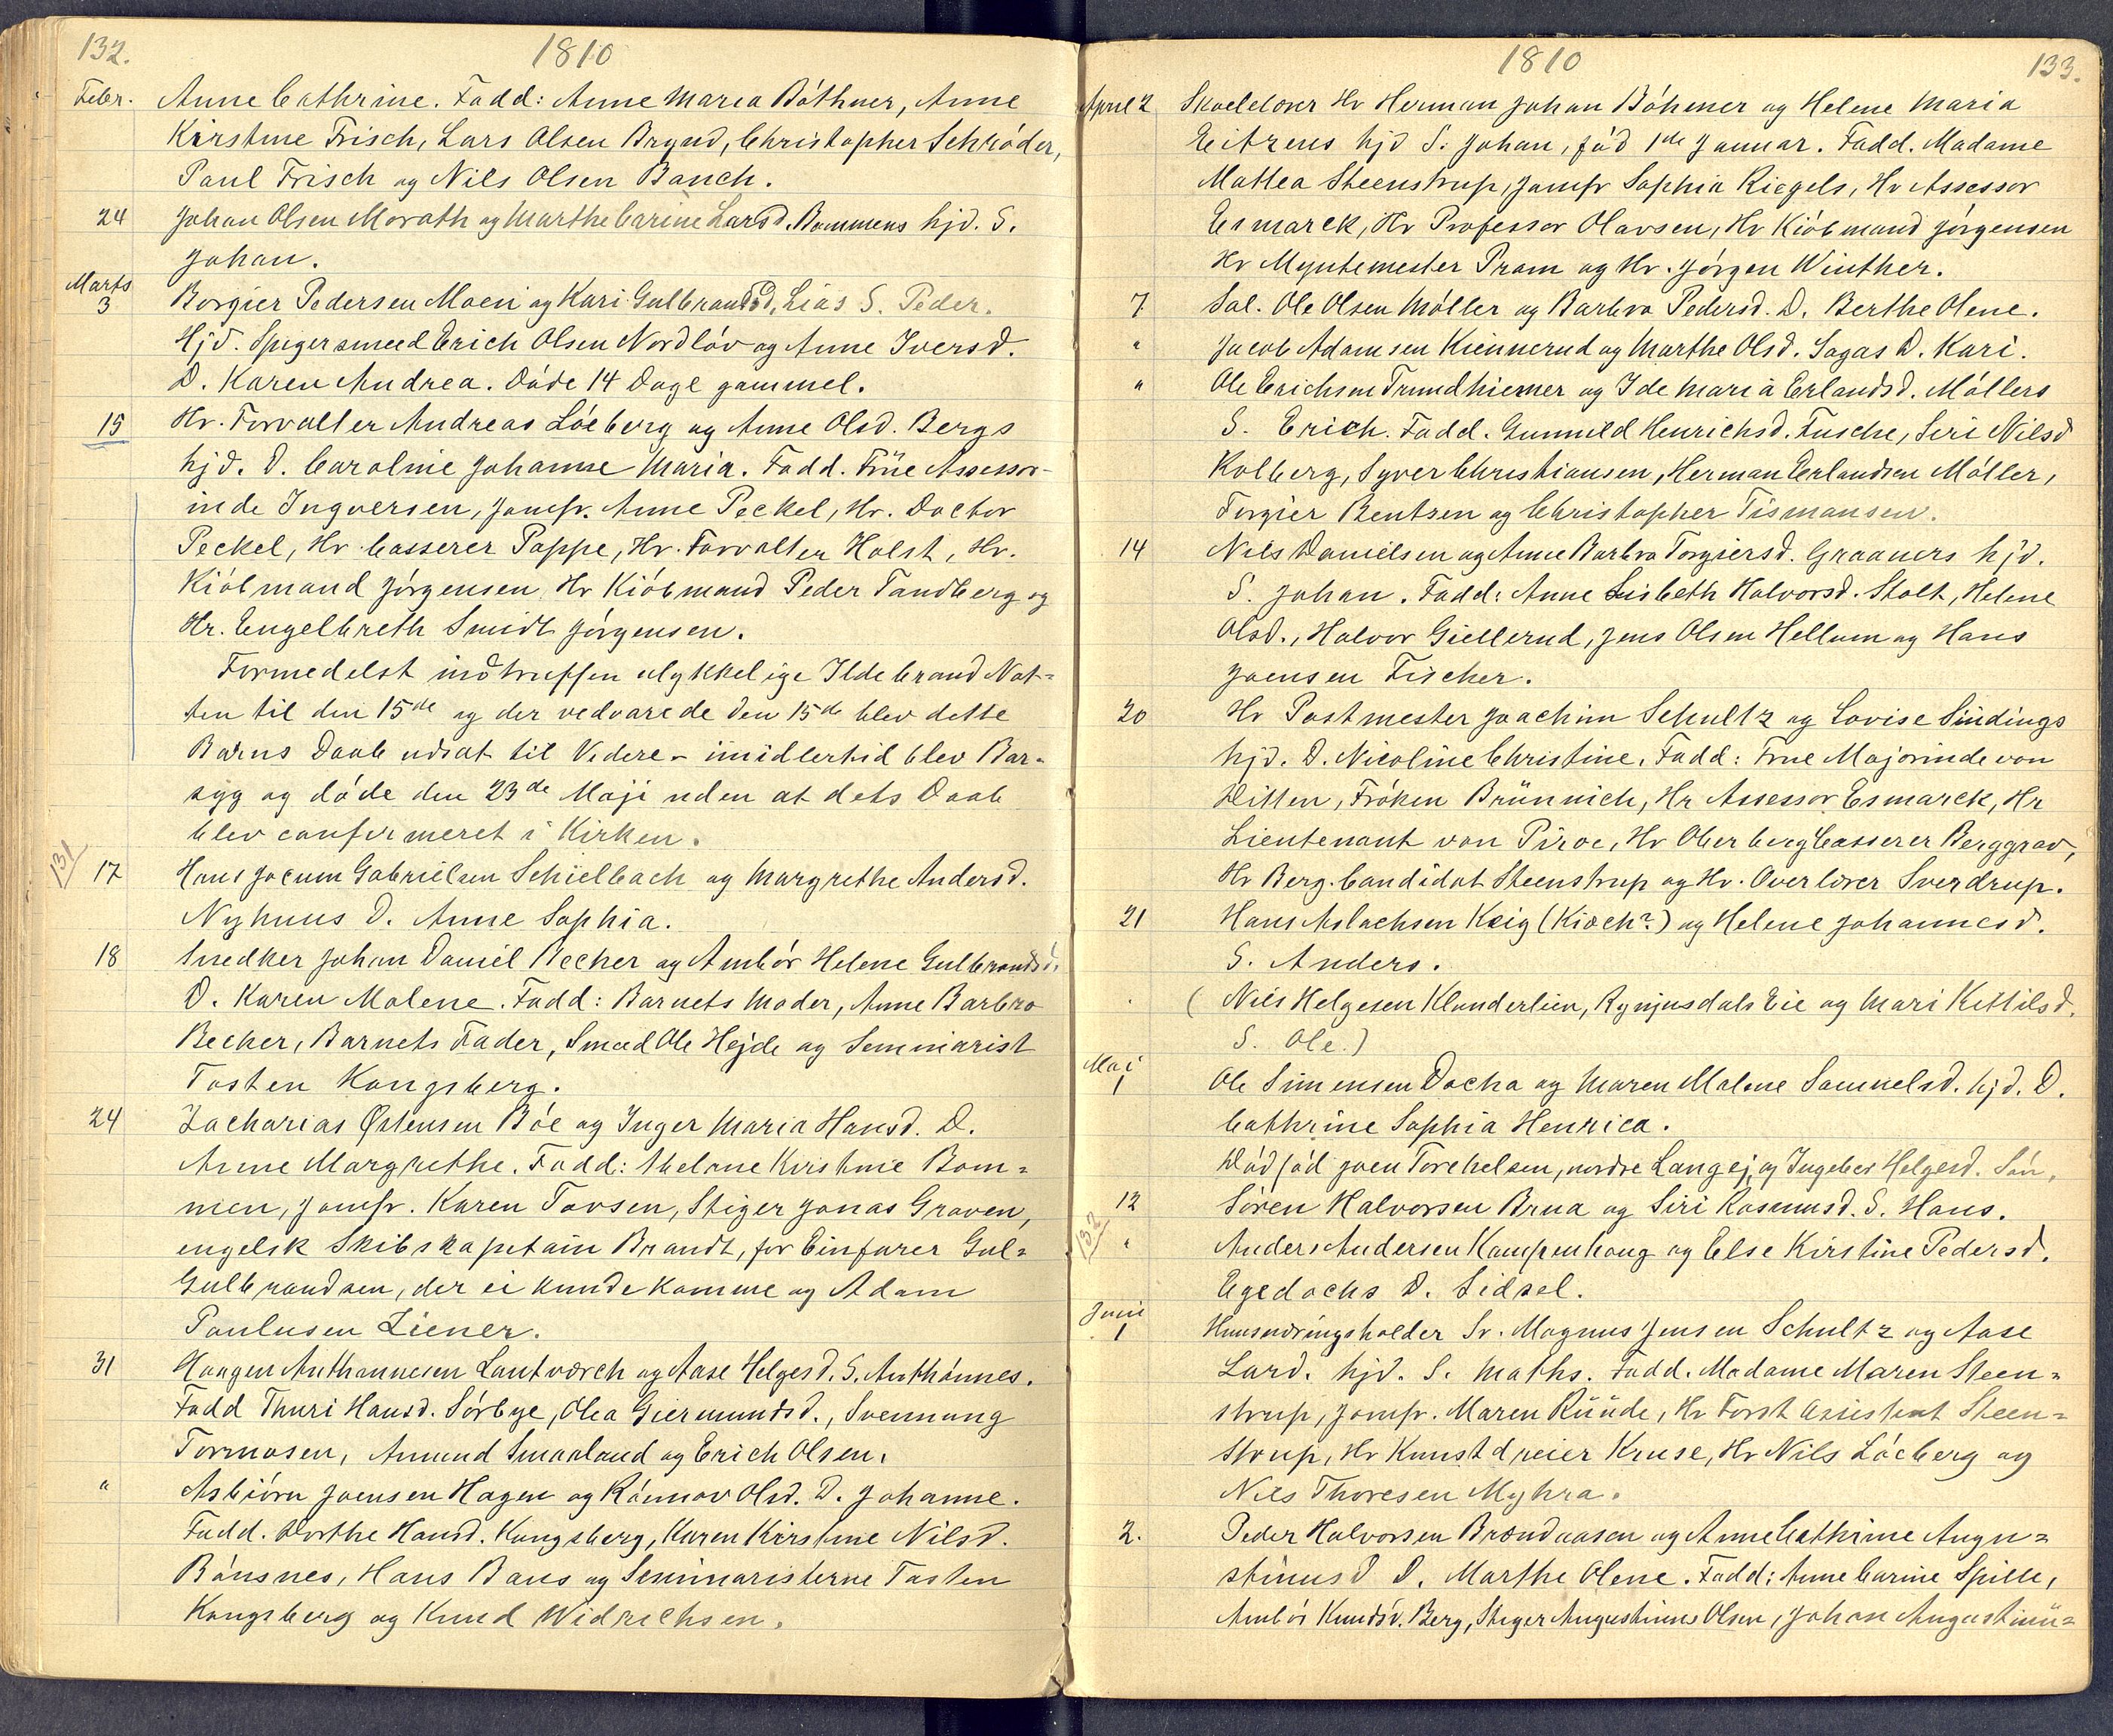 132.
1810
Febr. Anne Cathrine. Fadd: Anne Maria Bóthner, Anne
Kirstine Frisch, Lars Olsen Brynd, Christopher Schróder,
Paul Frisch og Nils Olsen Banch.
24 Johan Olsen Morath og Marthe Carine Larsd. Bommens hjd. S.
Johan.
Marts
3 Borgier Pedersen Moen og Kari Gulbrandsd. Lias S. Peder.
Hjd. Spigersmed Erich Olsen Nordlóv og Anne Iversd.
D. Karen Andrea. Dóde 14 Dage gammel.
15 Hr. Forvalter Andreas Lóeberg og Anne Olsd. Bergs
hjd. D. Caroline Johanne Maria. Fadd. Frúe Assessor-
inde Ingversen, Jomfr. Anne Peckel, Hr. Doctor
Peckel, Hr. Casserer Poppe, Hr. Forvalter Holst, Hr.
Kióbmand Jórgensen, Hr Kióbmand Peder Tandberg og
Hr. Engelbreth Smidt Jórgensen.
Formedelst indtruffen ulykkelige Ildebrand Nat=
ten til den 15de og der vedvarede den 15de blev dette
Barns Daab udsat til Videre - imidlertid blev Bar-
syg og dóde den 23de Maji uden at dets Daab
blev confirmeret i Kirken.
131/
17 Hans Jocum Gabrielsen Schielbach og Margrethe Andersd.
Nyhuus D. Anne Sophia.
18 Snedker Johan Daniel Becher og Ambór Helene Gulbrandsd.
D. Karen Malene. Fadd: Barnets Moder, Anne Barbro
Becher, Barnets Fader, Smed Ole Hejde og Seminarist
Tosten Kongsberg.
24 Zacharias Østensen Bóe og Inger Maria Hansd. D.
Anne Margrethe. Fadd: Helene Kirstine Bom=
men, Jomfr. Karen Tovsen, Stiger Jonas Graven,
engelsk Skibskapitain Brandt, for Einfarer Gul=
Gulbrandsen, der ei kunde komme og Adam
Paulusen Liener.
31 Haagen Anthonnesen Lantværch og Aase Helgesd. S. Anthónnes.
Fadd Thuri Hansd. Sórbye, Olea Giermundsd., Svennung
Tormosen, Amund Smaaland og Erich Olsen.
" Asbiórn Joensen Hagen og Rónnov Olsd. D. Johanne.
Fadd. Dorthe Hansd. Kongsberg, Karen Kirstine Nilsd.
Bónsnes, Hans Baus og Seminaristerne Tosten
Kongsberg og Knud Widrichsen.
1810
133.
April 2 Skoelelærer Hr Herman Johan Bóhmer og Helene Maria
Eitzens hjd S. Johan, fód 1de Januar. Fadd. Madame
Mattea Steenstrup, Jomfr Sophia Riegels, Hr Assessor
Esmarck, Hr Professor Olavsen, Hr Kióbmand Jórgensen
Hr Myntemester Pram og Hr. Jórgen Winther.
7 Sal. Ole Olsen Móller og Barbra Pedersd. D. Berthe Olene.
" Jacob Adamsen Kiennerud og Marthe Olsd. Sagas D. Kari.
" Ole Erichsen Trundhiemer og Ide Maria Erlandsd. Móllers
S. Erich. Fadd. Gunnild Henrichsd. Fusche, Siri Nilsd
Kolberg, Syver Christiansen, Herman Erlandsen Móller,
Torgier Bentzen og Christopher Tismansen.
14 Nils Danielsen og Anne Barbra Torgiersd. Graaners hjd.
S. Johan. Fadd: Anne Lisbeth Halvorsd. Stolt, Helene
Olsd., Halvor Giellerud, Jens Olsen Hellum og Hans
Joensen Fischer.
20 Hr Postmester Joachim Schultz og Lovise Sindings
hjd. D. Nicoline Christine. Fadd: Frue Majorinde von
Ditten, Fróken Brünnich, Hr Assessor Esmarck, Hr
Lieutenant von Piroe, Hr Oberberg Casserer Berggrav,
Hr Berg-Candidat Steenstrup og Hr. Overlærer Sverdrup.
21 Hans Aslachsen Keig (Kioch?) og Helene Johannesd.
S. Anders.
(Nils Helgesen Klunderlien, Rynjusdals Eie og Mari Kittilsd.
S. Ole.)
Mai
1 Ole Simensen Docka og Maren Malene Samuelsd. hjd. D.
Cathrine Sophia Henrica.
Dódfód Joen Torchelsen, nordre Langej, og Ingeber Helgesd. Són.
12 Sóren Halvorsen Brua og Siri Rasmusd. S. Hans.
132/
" Anders Andersen Kampenhaug og Else Kirstine Pedersd.
Egedochs D. Sidsel.
Juni
1 Huusnæringsholder Sr. Magnus Jensen Schultz og Aase
Larsd. hjd. S. Maths. Fadd. Madame Maren Steen=
strup, Jomfr. Maren Rüüde, Hr Forst Assistent Steen=
strup, Hr Kunstdreier Kruse, Hr Nils Lóeberg og
Nils Thoresen Myhra.
2. Peder Halvorsen Brændaasen og Anne Cathrine Augu=
stinusd D. Marthe Olene. Fadd: Anne Carine Spille,
Ambór Knudsd. Berg, Stiger Augustinus Olsen, Johan Augustinu=